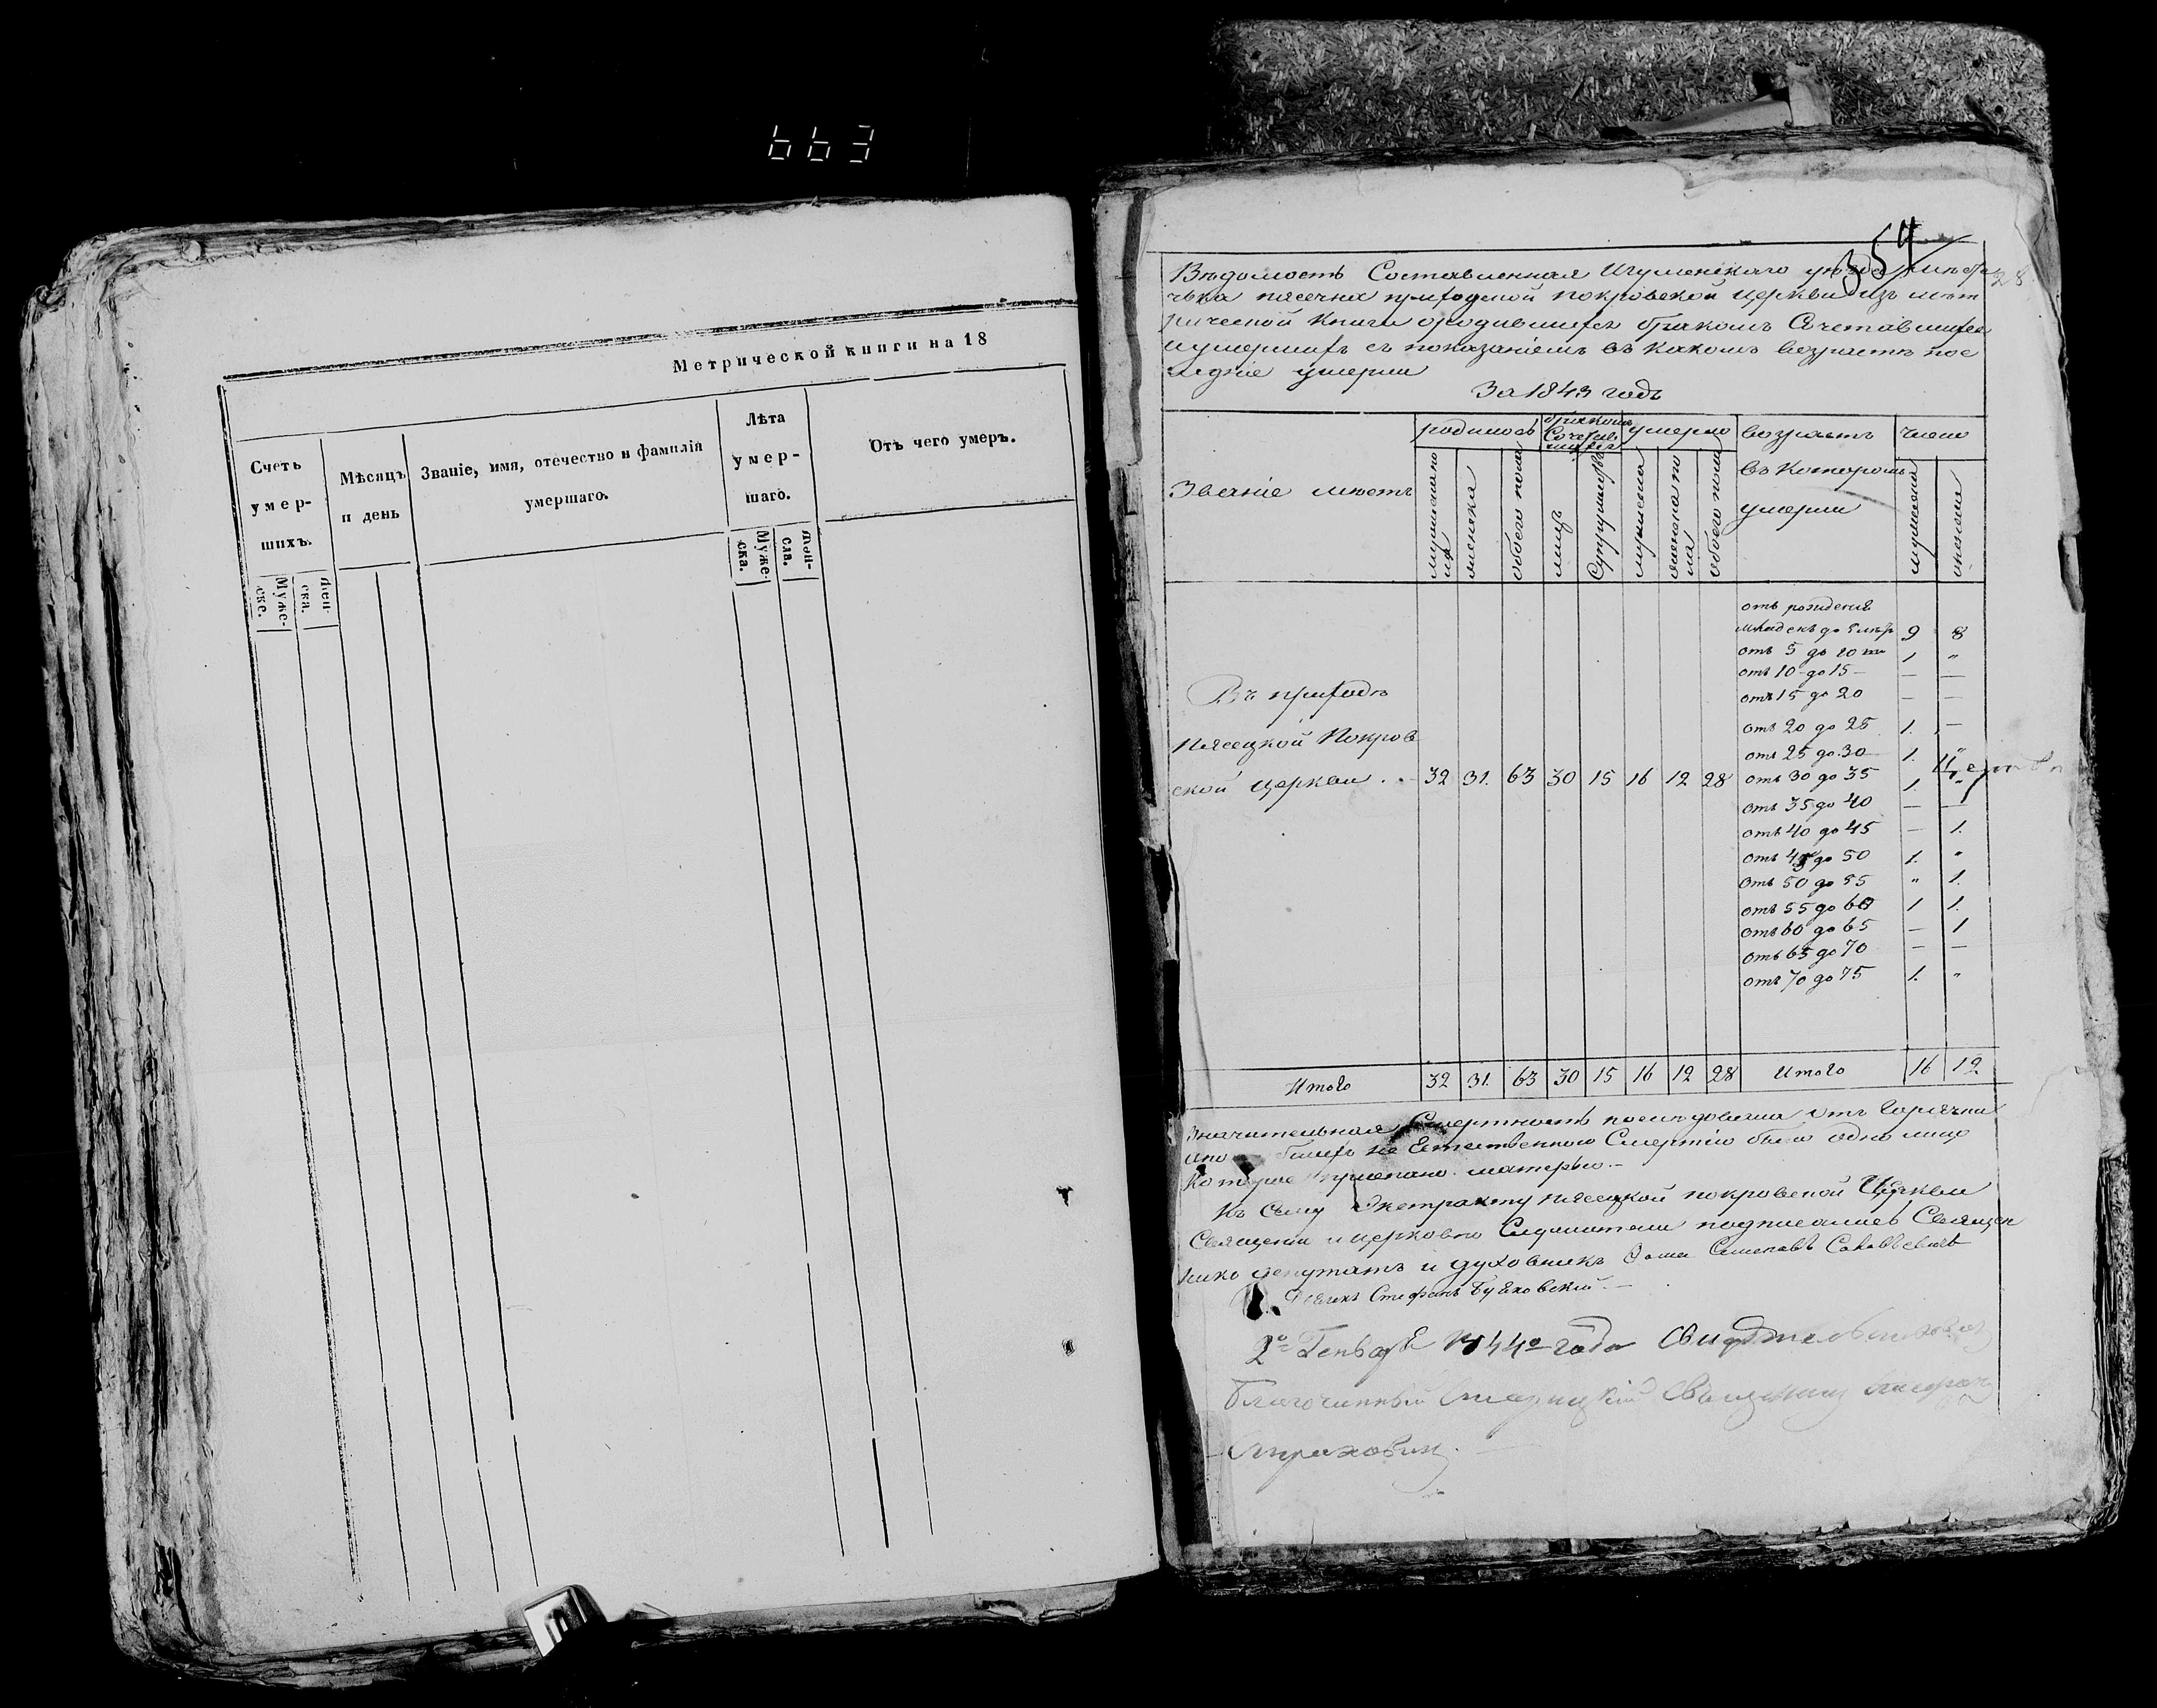 663
Метрической книги на 18
Счетъ умер-шихъ.
Мѣсяцъ и день
Званіе, имя, отечество и фамилія умершаго.
Лѣта умер-шаго.
Отъ чего умеръ.
Муже-ске.
Жен-ска.
Муже-ска.
Жен-ска.
354
28
Вѣдомость Составленная Игуменскаго уѣзда мѣсте
чка пясечна приходской покровской церкви изъ мет
рической книги о родившихся бракомъ Сочетавшихся
и умершихъ съ показаніемъ въ какомъ возрастѣ пос
ледніе умерли
За 1843 годъ
Званіе мѣстъ
родилось
бракомъ Сочетавшихся
умерло
возрастъ
число
въ которомъ
умерли
женска
обоего пола
лицъ
Супружествъ
обоего пола
отъ рожденія
младенъ до 5 лѣтъ 9 8
отъ 5 до 10 ти 1 "
отъ 10 до 15 — — —
отъ 15 до 20 — —
Въ приходѣ
отъ 20 до 25 1. —
Пясецкой Покров
отъ 25 до 30 1. "
ской церкви . . 32 31. 63 30 15 16 12 28 отъ 30 до 35 1. "
отъ 35 до 40 — —
отъ 40 до 45 — 1.
отъ 45 до 50 1. "
отъ 50 до 55 " 1.
отъ 55 до 60 1 1.
отъ 60 до 65 — 1
отъ 65 до 70 — —
отъ 70 до 75 1. "
Итого 32 31. 63 30 15 16 12 28 Итого 16 12
Значительная Смертность последовала отъ Горячки
не Естественною Смертію было одно лицо
Которое приспано матерью. —
Къ Сему Экстракту пясецкой покровской Церкви
Священно и церковно Служители подписались Священ
нико депутатъ и духовникъ
Стефанъ
2º Генваря 1844º года
Благочинный